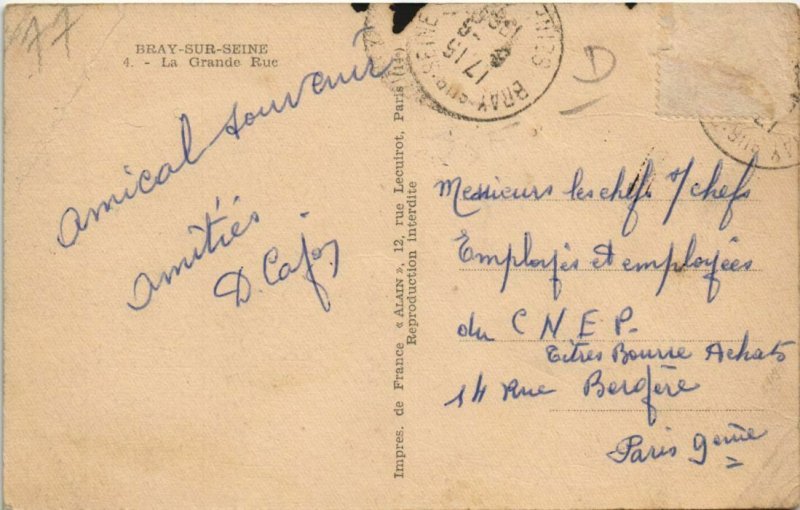 77
BRAY-SUR-SEINE
4. - La Grande Rue
amical souvenir
amitiés
D. Cajo
Impres. de France « ALAIN », 12, rue Lecuirot, Paris (14e)
Reproduction interdite
BRAY-SUR-SEINE
17 15
D
Messieurs les chefs s/chefs
Employés et employées
du C N E P.
titres Bourse Achats
14 Rue Bergère
Paris 9eme